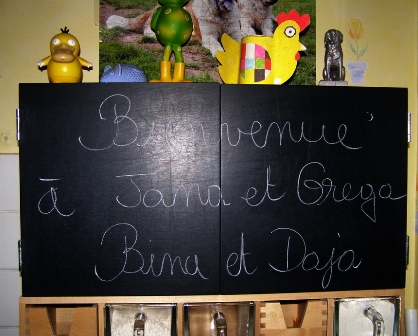 Bienvenue
à Jana et Grega
Bina et Daja